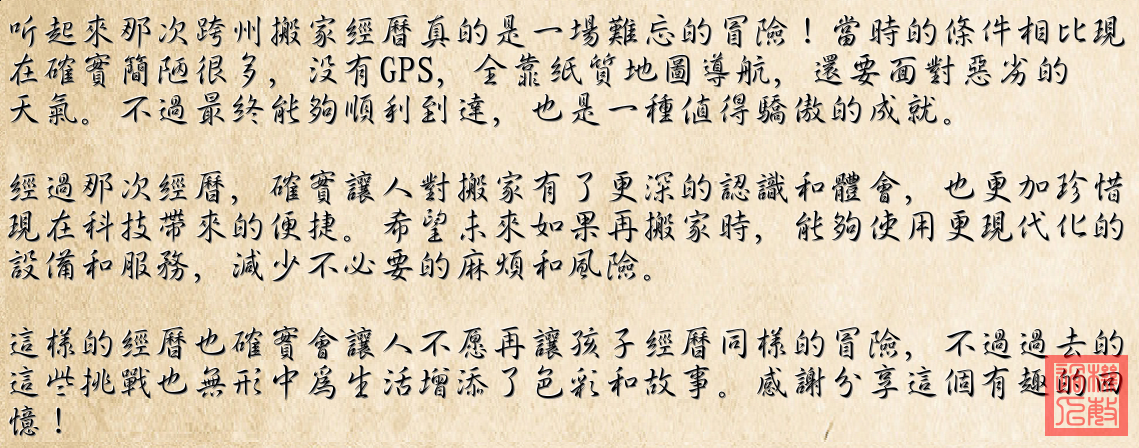 听起來那次跨州搬家經曆真的是一場難忘的冒險！當時的條件相比現
在確實簡陋很多，没有GPS，全靠紙質地圖導航，還要面對惡劣的
天氣。不過最终能夠順利到達，也是一種值得驕傲的成就。
經過那次經曆，確實讓人對搬家有了更深的認識和體會，也更加珍惜
現在科技帶來的便捷。希望未來如果再搬家時，能夠使用更現代化的
設備和服務，減少不必要的麻煩和風險。
這樣的經曆也確實會讓人不愿再讓孩子經曆同樣的冒險，不過過去的
這些挑戰也無形中爲生活增添了色彩和故事。感謝分享這個有趣的回
憶！